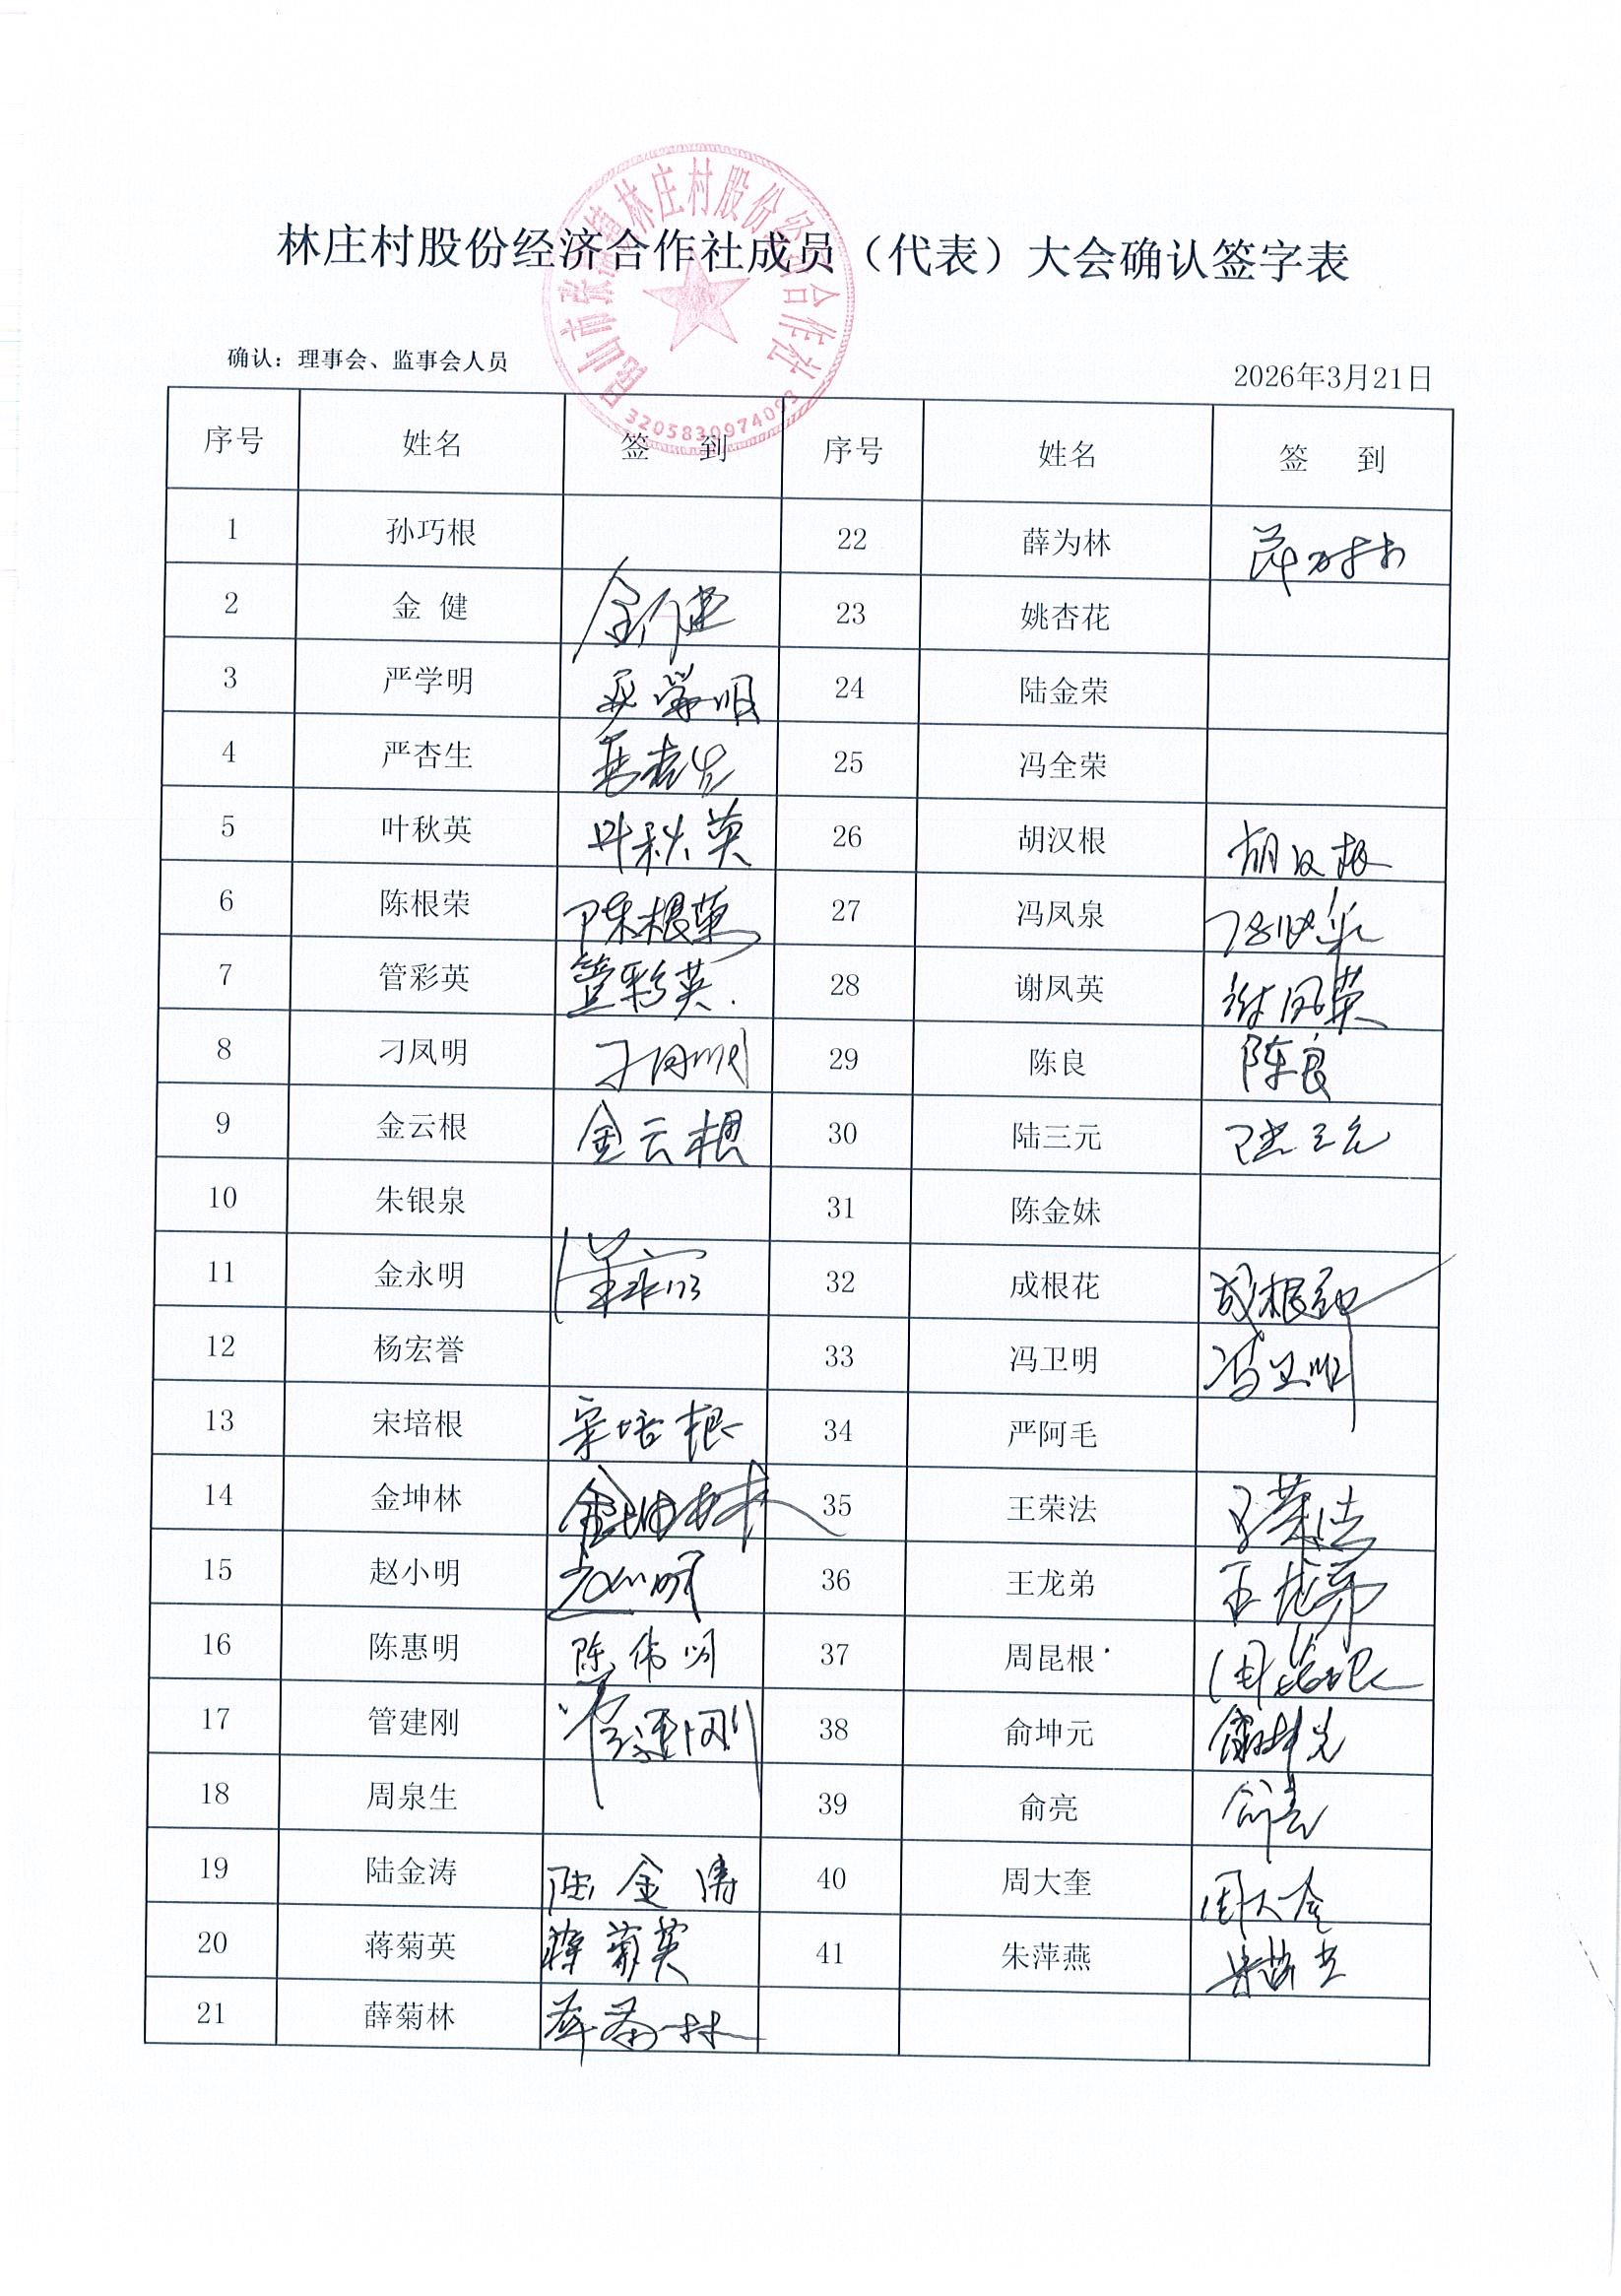 林庄村股份经济合作社成员（代表）大会确认签字表
昆山市张浦镇林庄村股份经济合作社
3205830974093
确认：理事会、监事会人员
2026年3月21日
序号 姓名 签 到 序号 姓名 签 到
1 孙巧根 22 薛为林 薛为林
2 金 健 金健 23 姚杏花
3 严学明 严学明 24 陆金荣
4 严杏生 严杏生 25 冯全荣
5 叶秋英 叶秋英 26 胡汉根 胡汉根
6 陈根荣 陈根荣 27 冯凤泉 冯凤泉
7 管彩英 管彩英. 28 谢凤英 谢凤英
8 刁凤明 刁凤明 29 陈良 陈良
9 金云根 金云根 30 陆三元 陆三元
10 朱银泉 31 陈金妹
11 金永明 32 成根花 成根花
12 杨宏誉 33 冯卫明 冯卫明
13 宋培根 宋培根 34 严阿毛
14 金坤林 金坤林 35 王荣法 王荣法
15 赵小明 赵小明 36 王龙弟 王龙弟
16 陈惠明 陈伟明 37 周昆根 周昆根
17 管建刚 管建刚 38 俞坤元 俞坤元
18 周泉生 39 俞亮 俞亮
19 陆金涛 陆金涛 40 周大奎 周大奎
20 蒋菊英 蒋菊英 41 朱萍燕
21 薛菊林 薛菊林